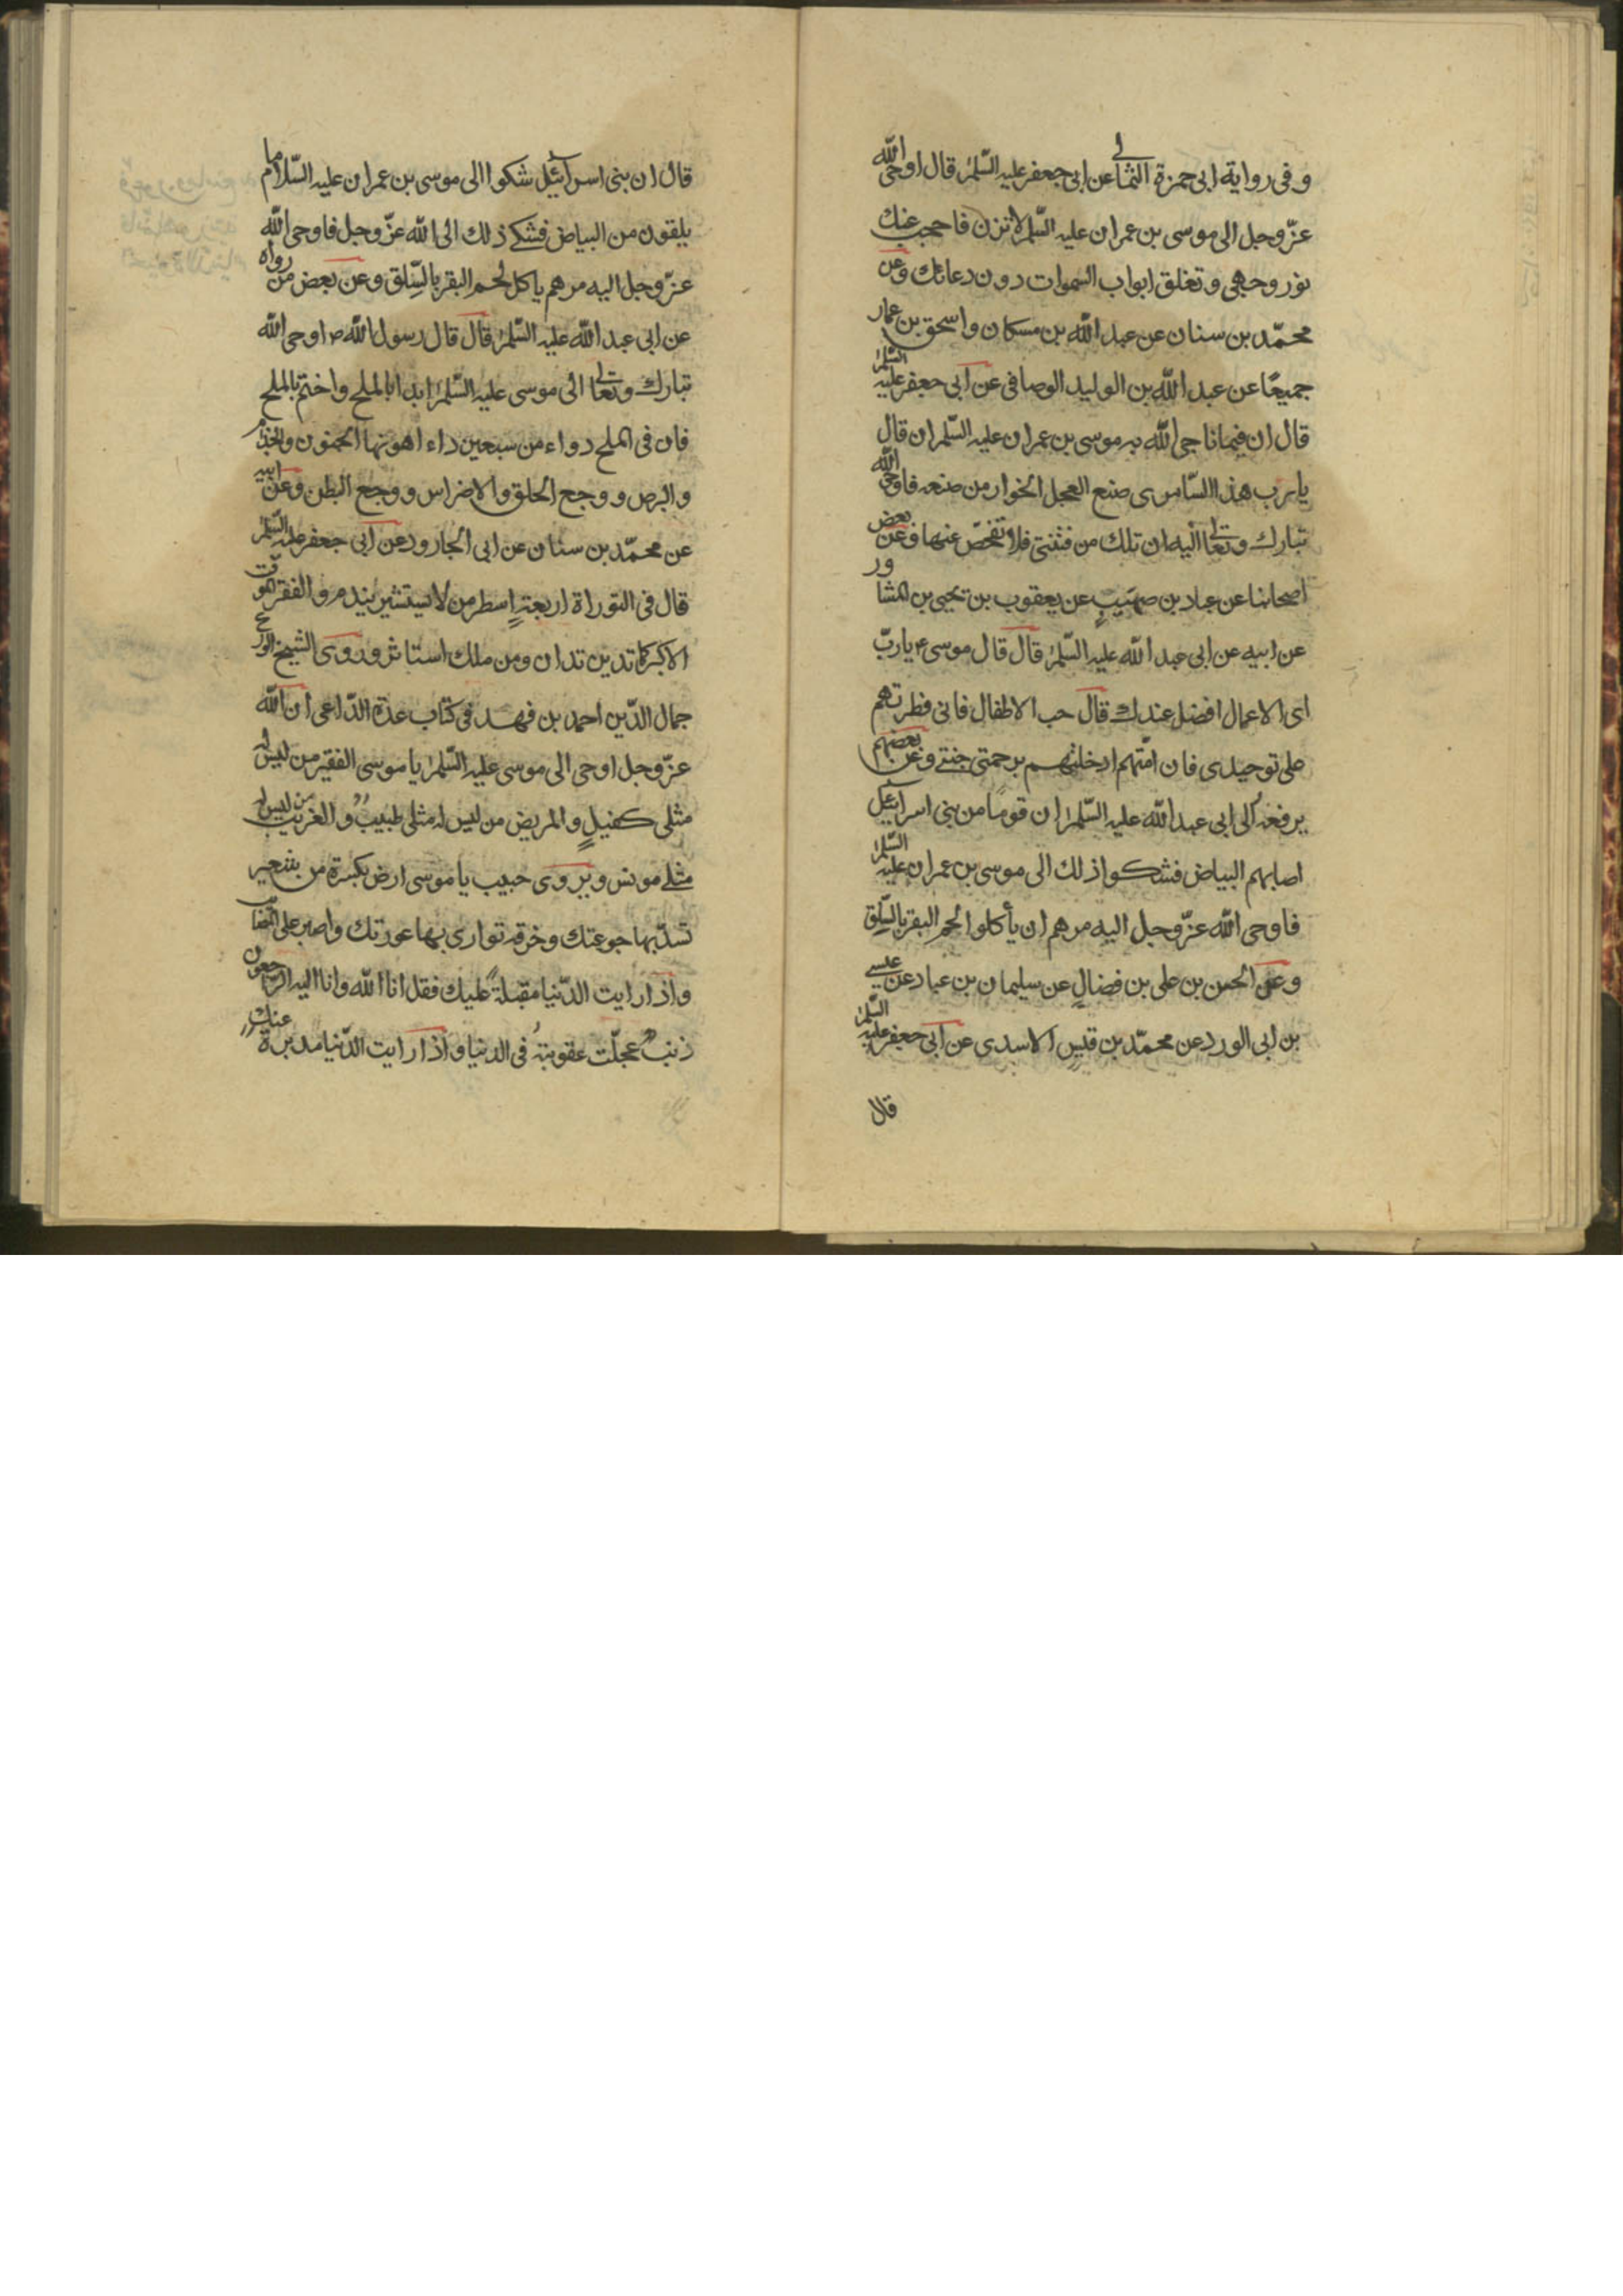 وفی روایة ابی حمزة الثمالی عن ابی جعفر علیه السّلم قال اوحی الله
عزّ وجل الی موسی بن عمران علیه السّلم لا تزن فاحجب عنك
نور وجهی وتغلق ابواب السموات دون دعائك وعن
محمّد بن سنان عن عبد الله بن مسکان واسحق بن عمار
جمیعًا عن عبد الله بن الولید الوصافی عن ابی جعفر علیه السّلم
قال ان فیما ناجی الله به موسی بن عمران علیه السّلم ان قال
یا ربّ هذا السّامری صنع العجل الخوار من صنعه فاوحی الله
تبارك وتعالی الیه ان تلك من فتنتی فلا تفحّص عنها وعن بعض
اصحابنا عن عباد بن صهیبٍ عن یعقوب بن یحیی بن المشاور
عن ابیه عن ابی عبد الله علیه السّلم قال قال موسی ع یا ربّ
ای الاعمال افضل عندك قال حب الاطفال فانی فطرتهم
علی توحیدی فان امّتهم ادخلتهم برحمتی جنتی وعن بعضهم
یرفعه الی ابی عبد الله علیه السّلم ان قومًا من بنی اسرائیل
اصابهم البیاض فشکوا ذلك الی موسی بن عمران علیه السّلم
فاوحی الله عزّ وجل الیه مرهم ان یأکلوا لحم البقر بالسّلِق
وعن الحسن بن علی بن فضالٍ عن سلیمان بن عباد عن عیسی
بن ابی الورد عن محمّد بن قیسٍ الاسدی عن ابی جعفر علیه السّلم
قال
قال ان بنی اسرآئیل شکوا الی موسی بن عمران علیه السّلام ما
یلقون من البیاض فشکی ذلك الی الله عزّ وجل فاوحی الله
عزّ وجل الیه مرهم یاکل لحم البقر بالسّلِق وعن بعض من رواه
عن ابی عبد الله علیه السّلم قال قال رسول الله ص اوحی الله
تبارك وتعالی الی موسی علیه السّلم ابدا بالملح واختم بالملح
فان فی الملح دواء من سبعین داء اهونها الجنون والجذام
والبرص ووجع الحلق والاضراس ووجع البطن وعن ابیه
عن محمّد بن سنان عن ابی الجارود عن ابی جعفر علیه السّلم
قال فی التوراة اربعة اسطر من لا یستشیر یندم والفقر الموت
الاکبر کما تدین تدان ومن ملك استاثر وروی الشیخ الورع
جمال الدّین احمد بن فهد فی کتاب عدة الدّاعی ان الله
عزّ وجل اوحی الی موسی علیه السّلم یا موسی الفقیر من لیس له
مثلی کفیلٍ والمریض من لیس له مثلی طبیبٌ والغریب من لیس له
مثلی مونس ویروی حبیب یا موسی ارض بکسرة من شعیر
تسدّ بها جوعتك وخرقه تواری بها عورتك واصبر علی المصائب
واذا رایت الدّنیا مقبلةً علیك فقل انا لله وانا الیه راجعون
ذنبٌ عجلّت عقوبتهُ فی الدنیا واذا رایت الدّنیا مدبرة عنك